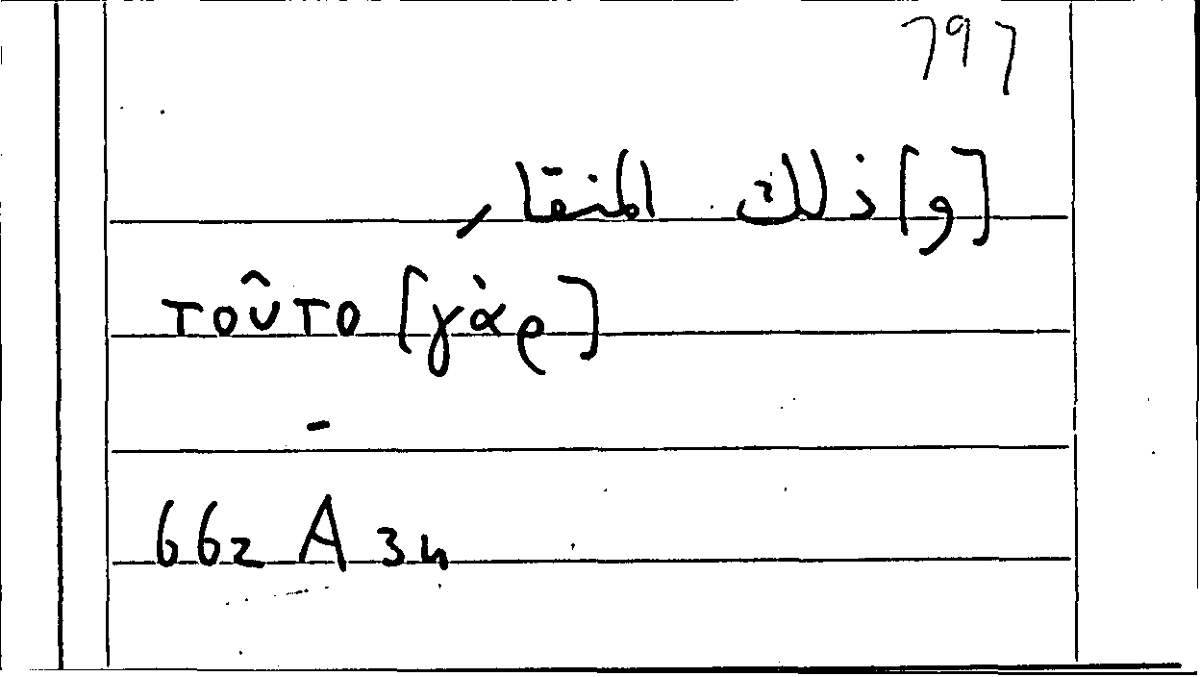 797
[و]ذلك المنقار
τοῦτο [γὰρ]
-
662 A 34